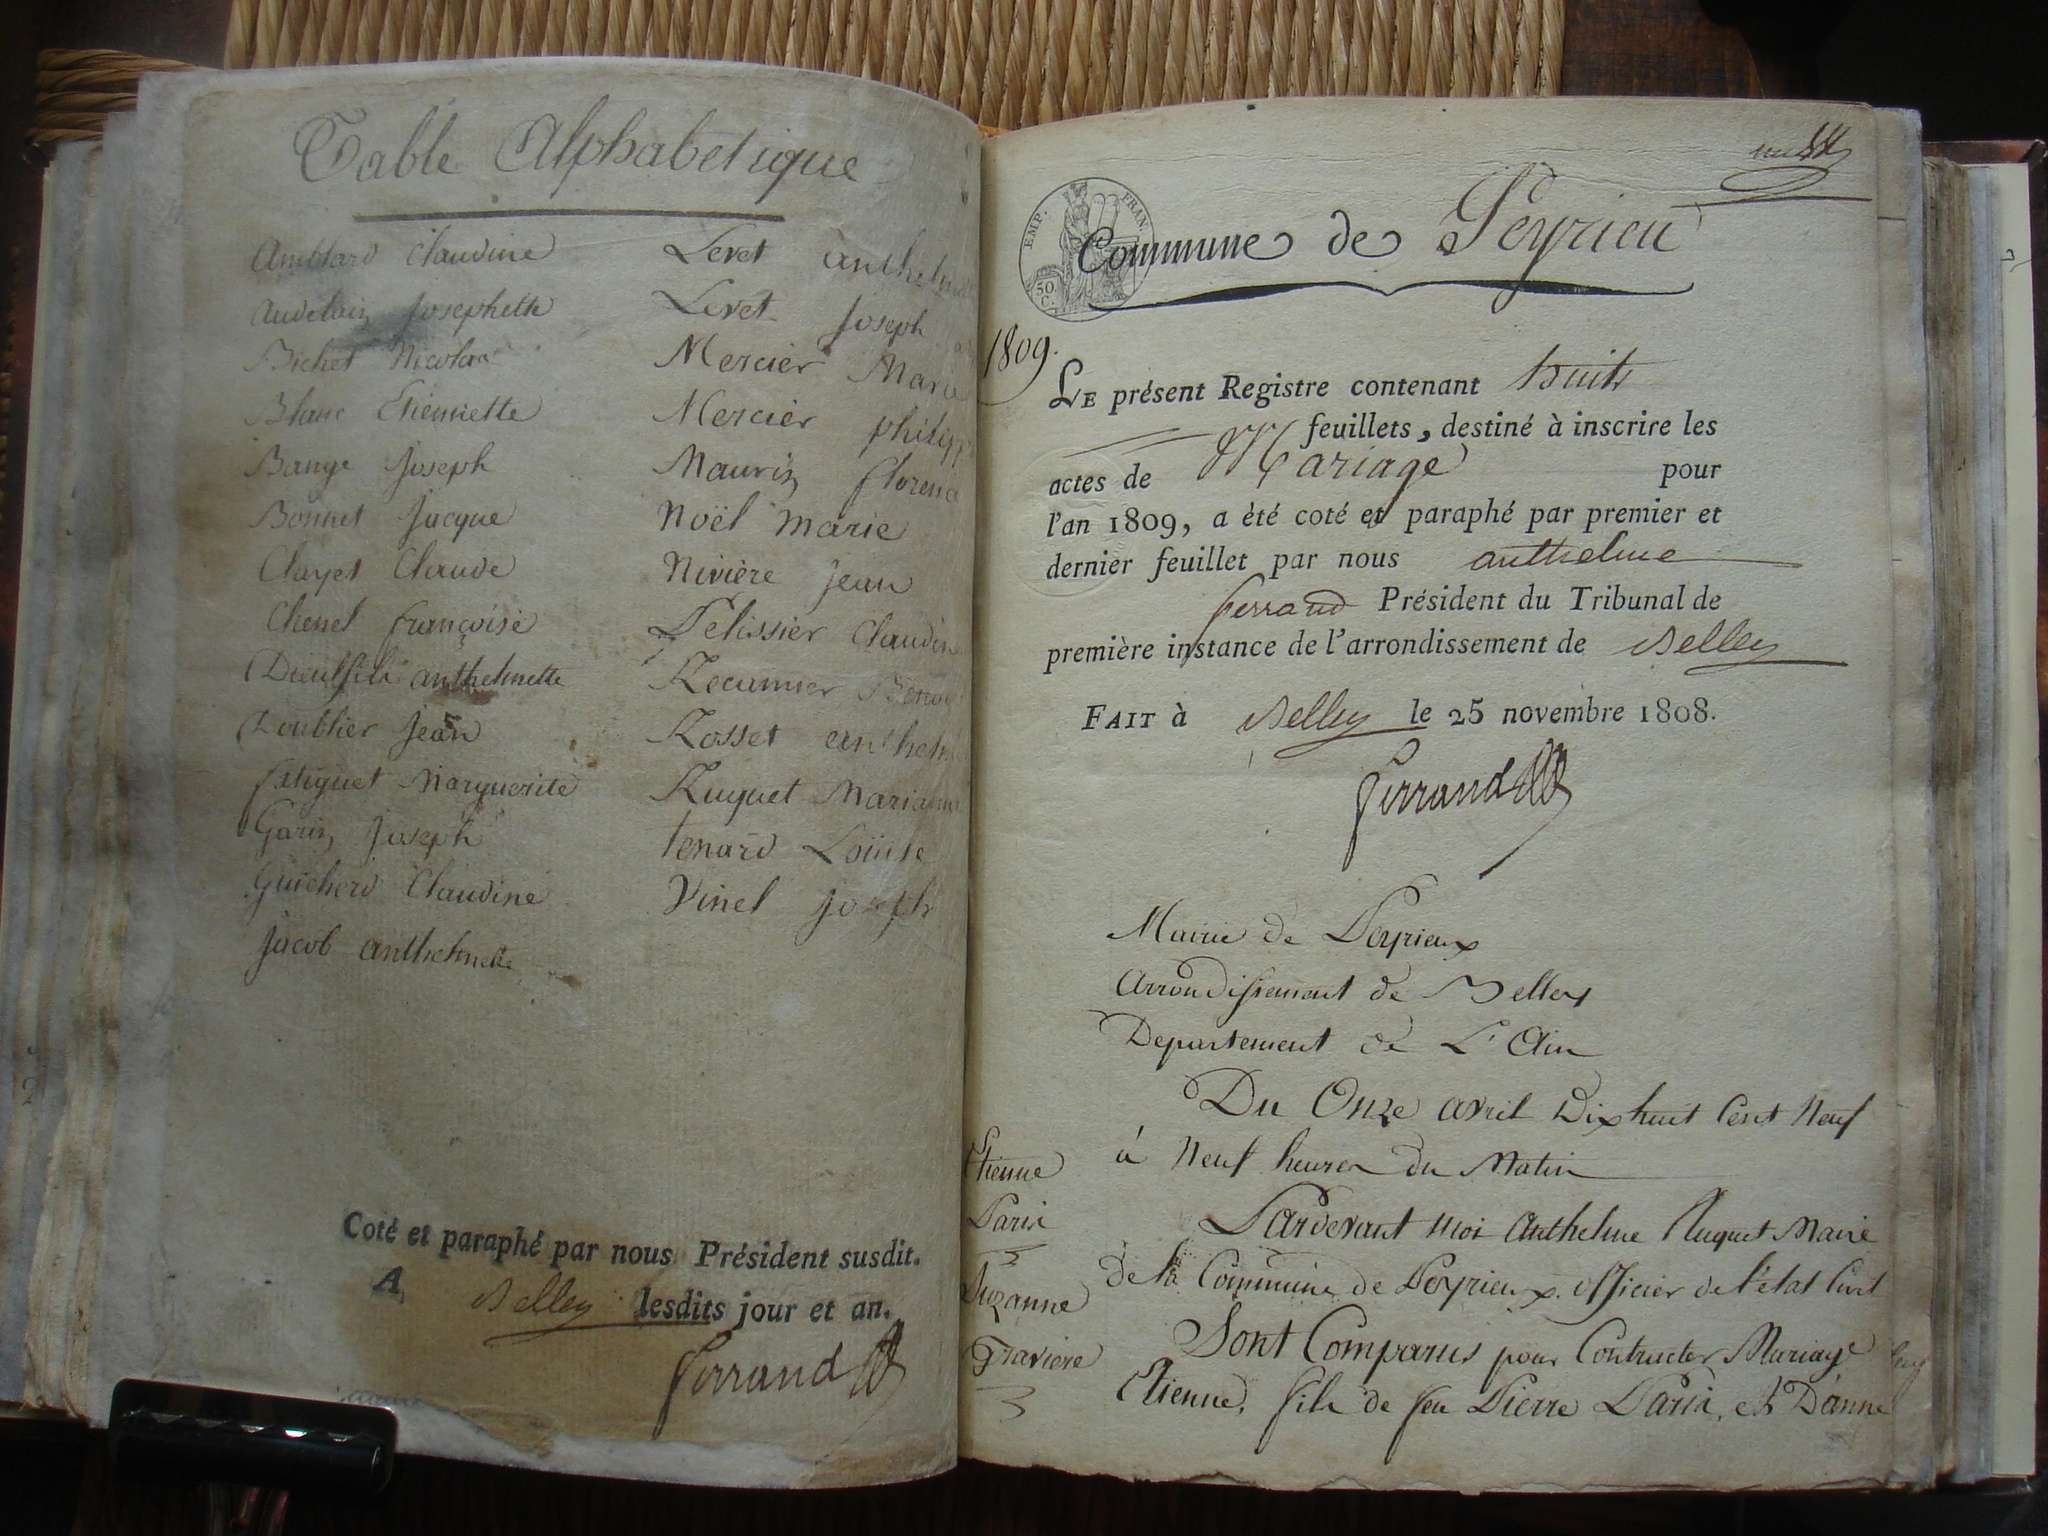 Table Alphabetique
Amblard Claudine
Audelain Josephette
Bichet Nicolas
Blanc Etiennette
Bange Joseph
Bonnet Jacque
Clayet Claude
Chenel françoise
anthelmette
Doublier Jean
Marguerite
Garin Joseph
Guicherd Claudine
Jacob anthelmette
Levet
Levet Joseph
Mercier Marie
Mercier
Maurin
Noël Marie
Nivière Jean
Pelissier
Recamier
Rosset
Ruguet
tenard Louise
Vinel Joseph
Coté et paraphé par nous Président susdit.
A Belley lesdits jour et an.
Ferrand
Commune de Peyrieu
EMP. FRAN.
50. C.
1809.
LE présent Registre contenant huit
feuillets, destiné à inscrire les
actes de Mariage pour
l'an 1809, a été coté et paraphé par premier et
dernier feuillet par nous anthelme
ferrand Président du Tribunal de
première instance de l'arrondissement de Belley
FAIT à Belley le 25 novembre 1808.
Ferrand
Mairie de Peyrieux
Arrondissement de Belley
Departement de L'Ain
Du Onze avril Dix huit Cent Neuf
à Neuf heures du Matin
Etienne
Paris
Suzanne
Graviere
Pardevant moi Anthelme Ruguet Maire
de la Commune de Peyrieux. officier de l'état Civil
Sont Comparus pour Contracter Mariage
Etienne, fils de feu Pierre Paris, et D'anne